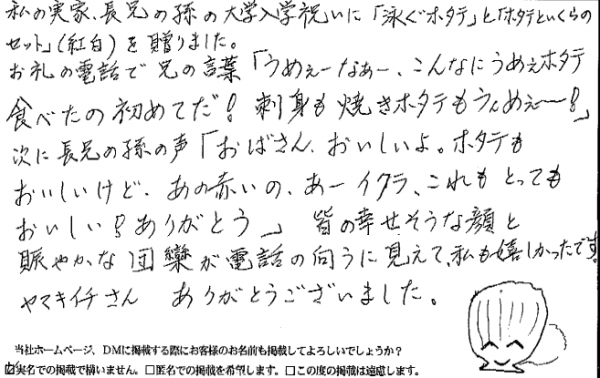 私の実家、長兄の孫の大学入学祝いに「泳ぐホタテ」と「ホタテといくらの
セット」(紅白)を贈りました。
お礼の電話で兄の言葉「うめぇーなぁー、こんなにうめぇホタテ
食べたの初めてだ!刺身も焼きホタテもうんめぇ〜!」
次に長兄の孫の声「おばさん、おいしいよ。ホタテも
おいしいけど、あの赤いの、あーイクラ、これもとっても
おいしい!ありがとう」皆の幸せそうな顔と
賑やかな団欒が電話の向うに見えて、私も嬉しかったです。
ヤマキイチさん ありがとうございました。
当社ホームページ、DMに掲載する際にお客様のお名前も掲載してよろしいでしょうか?
☑実名での掲載で構いません。□匿名での掲載を希望します。□この度の掲載は遠慮します。